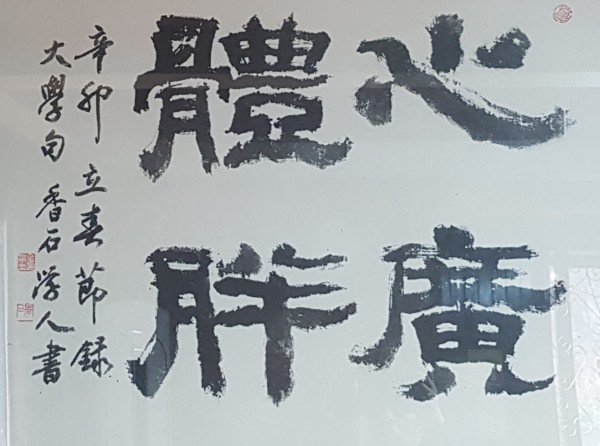 心廣
體胖
辛卯立春節録
大學句香石学人書